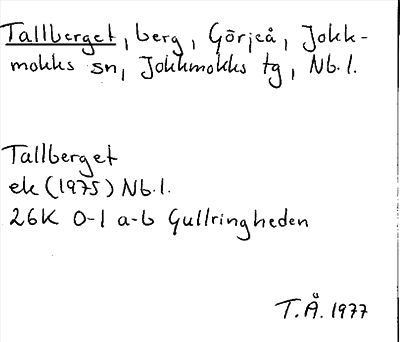 Tallberget, berg, Görjeå, Jokk-
mokks sn, Jokkmokks tg, Nb. l.
Tallberget
ek (1975) Nb. l.
26K 0-1 a-b Gullringheden
T.Å. 1977